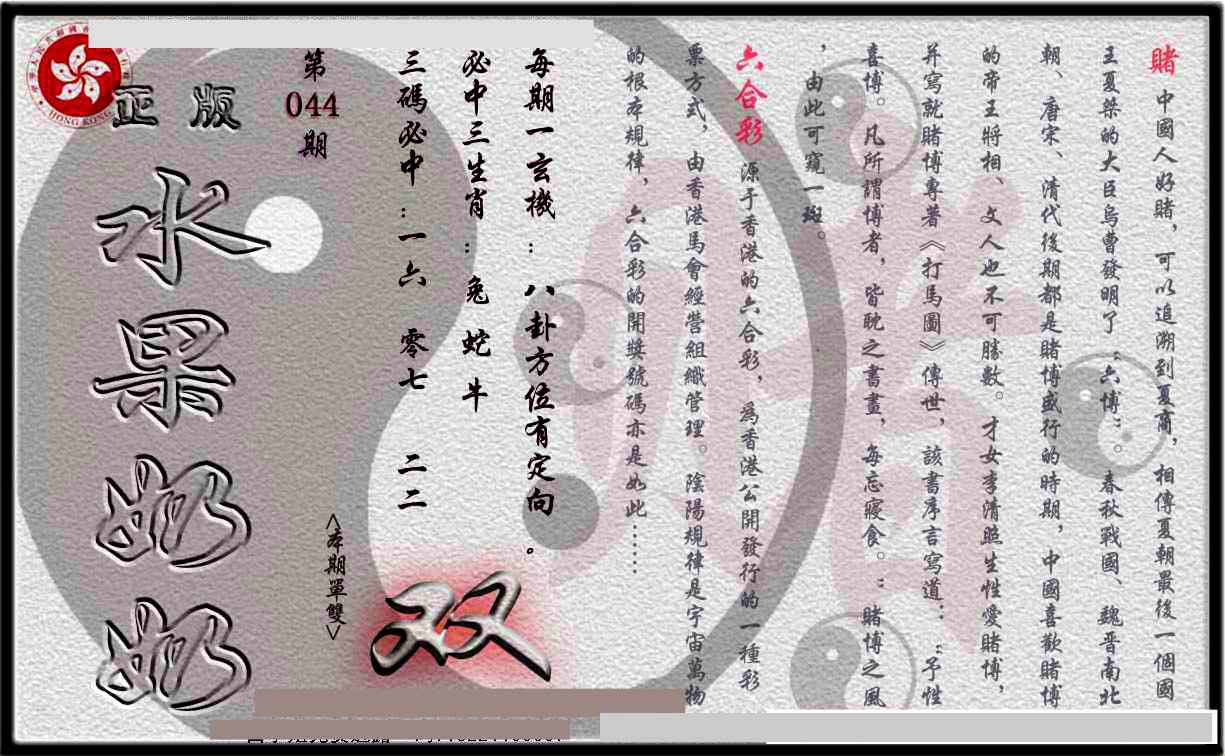 賭 中國人好賭，可以追溯到夏商，相傳夏朝最後一個國
王夏桀的大臣烏曹發明了“六博”。春秋戰國、魏晉南北
朝、唐宋、清代後期都是賭博盛行的時期，中國喜歡賭博
的帝王將相、文人也不可勝數。才女李清照生性愛賭博，
并寫就賭博專著《打馬圖》傳世，該書序言寫道：“予性
喜博。凡所謂博者，皆耽之書畫，每忘寢食。”賭博之風
，由此可窺一斑。
六合彩 源于香港的六合彩，為香港公開發行的一種彩
票方式，由香港馬會經營組織管理。陰陽規律是宇宙萬物
的根本規律，六合彩的開獎號碼亦是如此……
每期一玄機：八卦方位有定向。
必中三生肖：兔 蛇 牛
三碼必中：一六 零七 二二
第
044
期
<本期單雙>
双
正版
水果奶奶
HONG KONG